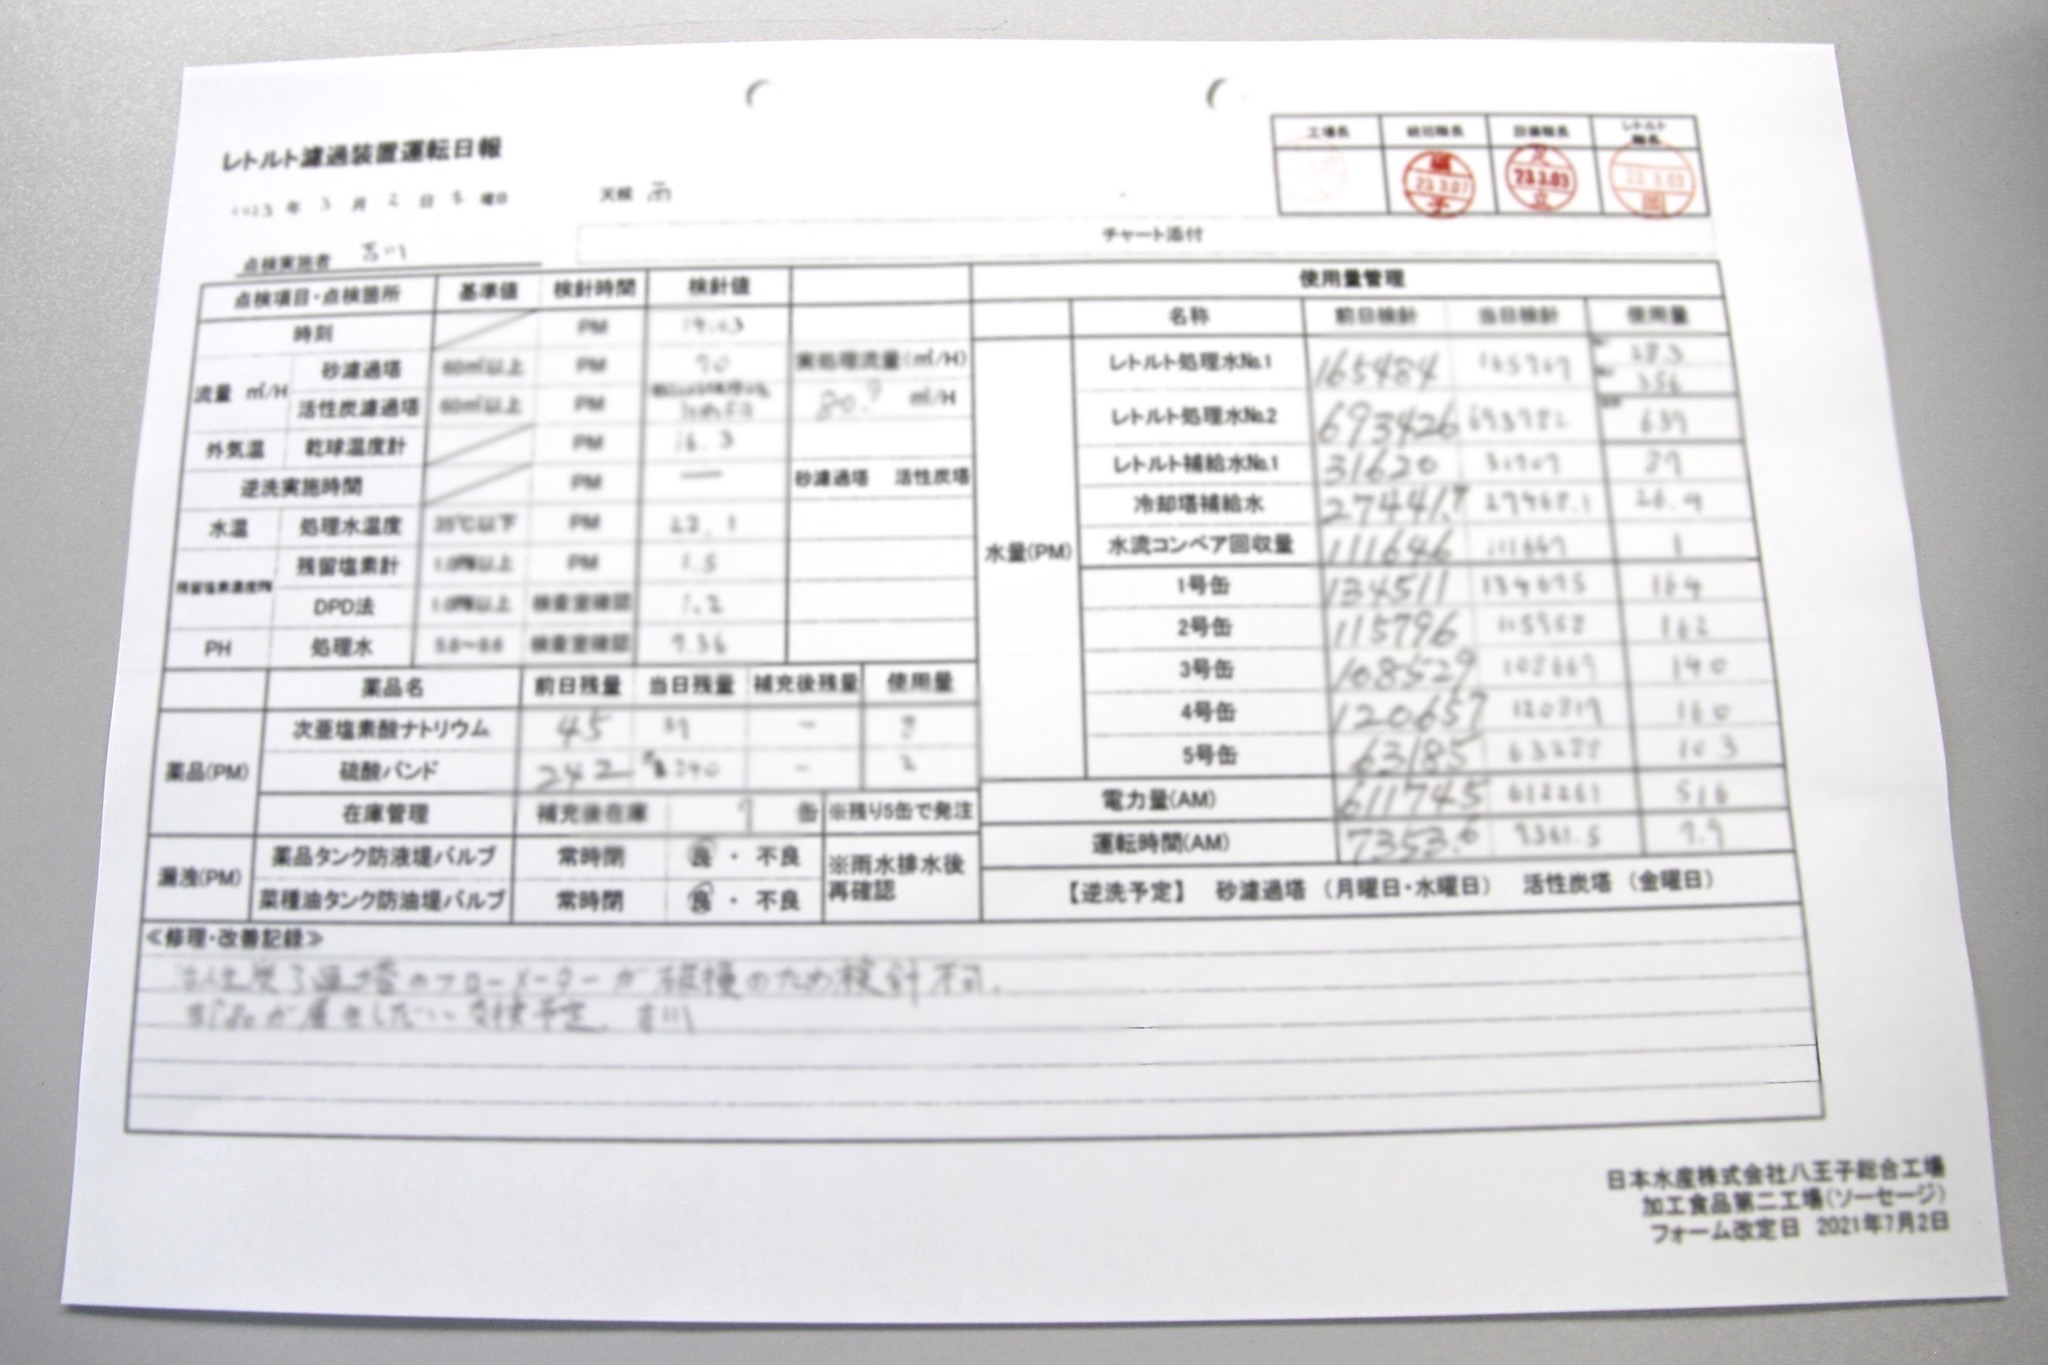 レトルト濾過装置運転日報
2023 年 3 月 2 日 曜日 天候 雨
工場長 設備職長 レトルト職長
23.3.07 23.3.03 足立 23.3.03
点検実施者 吉川
チャート添付
点検項目・点検箇所 基準値 検針時間 検針値 使用量管理
名称 前日検針 当日検針 使用量
時刻 PM 14:03
流量 ㎥/H 砂濾過塔 60㎥以上 PM 70 実処理流量(㎥/H)
活性炭濾過塔 60㎥以上 PM 80.9 ㎥/H
外気温 乾球温度計 PM 16.3
逆洗実施時間 PM ー 砂濾過塔 活性炭塔
水温 処理水温度 35℃以下 PM 22.1
残留塩素計 PM 1.5
DPD法 検査室確認 1.2
PH 処理水 5.8～8.6 検査室確認 7.36
水量(PM)
レトルト処理水№1 165484 165767 283
356
レトルト処理水№2 693426 693782 639
レトルト補給水№1 31620
冷却塔補給水 27441.7 27468.1
水流コンベア回収量 111646 111647 1
1号缶 134511 134675 164
2号缶 115796 115958 162
3号缶 108529 108669 140
4号缶 120657 120817 160
5号缶 63185 63288 103
電力量(AM) 611745 612261 516
運転時間(AM) 7353.6 7361.5 7.9
【逆洗予定】 砂濾過塔 （月曜日・水曜日） 活性炭塔 （金曜日）
薬品名 前日残量 当日残量 補充後残量 使用量
薬品(PM)
次亜塩素酸ナトリウム 45 37 - 8
硫酸バンド 242 240 - 2
在庫管理 補充後在庫 缶 ※残り5缶で発注
漏洩(PM)
薬品タンク防液堤バルブ 常時閉 良・不良 ※雨水排水後
再確認
菜種油タンク防油堤バルブ 常時閉 良・不良
≪修理・改善記録≫
活性炭ろ過塔のフローメーターが破損のため検針不可。
部品が届きしだい交換予定。吉川
日本水産株式会社八王子総合工場
加工食品第二工場(ソーセージ)
フォーム改定日 2021年7月2日